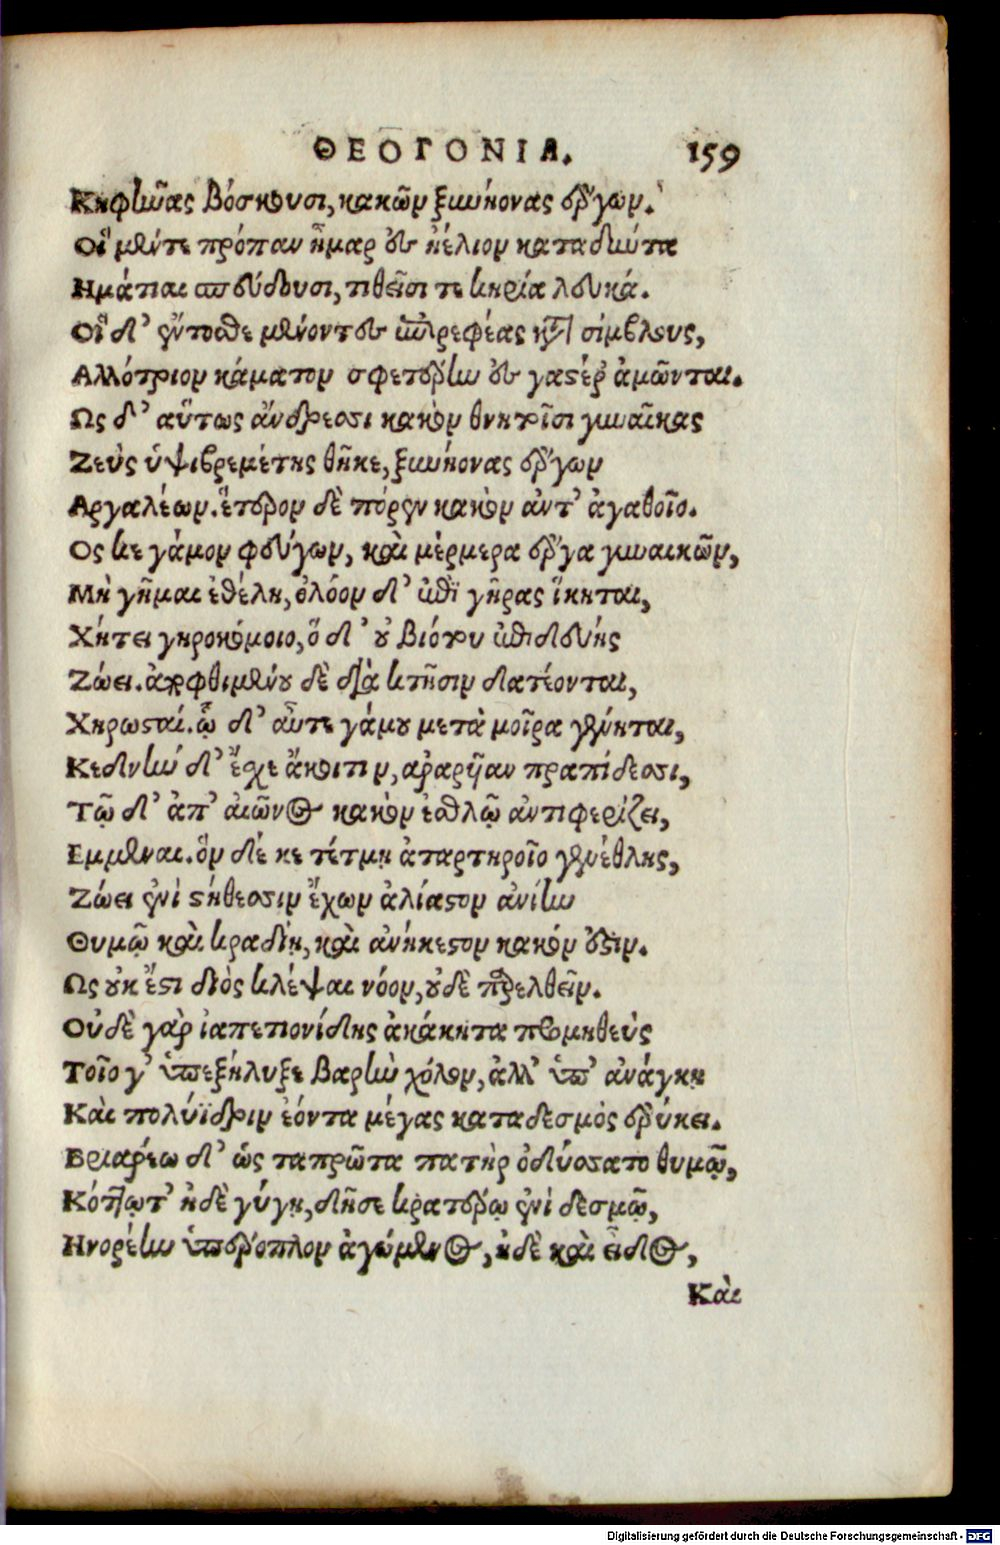 ΘΕΟΓΟΝΙΑ. 159
Κηφῆνας βόσκουσι, κακῶν ξυνήονας ἔργων.
Οἵ μέντε πρόπαν ἦμαρ ἐς ἠέλιον καταδύντα
Ημάτιαι σπεύδουσι, τιθεῖσί τε κηρία λευκά.
Οἵ δ' ἔντοσθε μένοντες ἐπηρεφέας κατὰ σίμβλους,
Αλλότριον κάματον σφετέρην ἐς γαστέρ' ἀμῶνται.
Ως δ' αὔτως ἄνδρεσσι κακὸν θνητοῖσι γυναῖκας
Ζεὺς ὑψιβρεμέτης θῆκε, ξυνήονας ἔργων
Αργαλέων. ἕτερον δὲ πόρεν κακὸν ἀντ' ἀγαθοῖο.
Ος κε γάμον φεύγων, καὶ μέρμερα ἔργα γυναικῶν,
Μὴ γῆμαι ἐθέλη, ὀλόον δ' ἐπὶ γῆρας ἵκηται,
Χήτει γηροκόμοιο, ὅ δ' οὐ βιότου ἐπιδευής
Ζώει. ἀποφθιμένου δὲ διὰ κτῆσιν δατέονται,
Χηρωσταί. ᾧ δ' αὖτε γάμου μετὰ μοῖρα γένηται,
Κεδνὴν δ' ἔσχε ἄκοιτιν, ἀραρῆαν πραπίδεσσι,
Τῷ δ' ἀπ' αἰῶνος κακὸν ἐσθλῷ ἀντιφερίζει,
Εμμεναι. ὃν δέ κε τέτμη ἀταρτηροῖο γενέθλης,
Ζώει ἐνὶ στήθεσσιν ἔχων ἀλίαστον ἀνίην
Θυμῷ καὶ κραδίῃ, καὶ ἀνήκεστον κακόν ἐστιν.
Ως οὐκ ἔστι διὸς κλέψαι νόον, οὐδὲ παρελθεῖν.
Οὐδὲ γὰρ ἰαπετιονίδης ἀκάκητα προμηθεὺς
Τοῖό γ' ὑπεξήλυξε βαρὺν χόλον, ἀλλ' ὑπ' ἀνάγκη
Καὶ πολύϊδριν ἐόντα μέγας κατα δεσμὸς ἐρύκει.
Βριαρέω δ' ὡς ταπρῶτα πατὴρ ὀδύσσατο θυμῷ,
Κόττῳ τ' ἠδὲ γύγῃ, δῆσε κρατερῷ ἐνὶ δεσμῷ,
Ηνορέην ὑπέροπλον ἀγώμενος, ἠδὲ καὶ εἶδος,
Καὶ
Digitalisierung gefördert durch die Deutsche Forschungsgemeinschaft - DFG